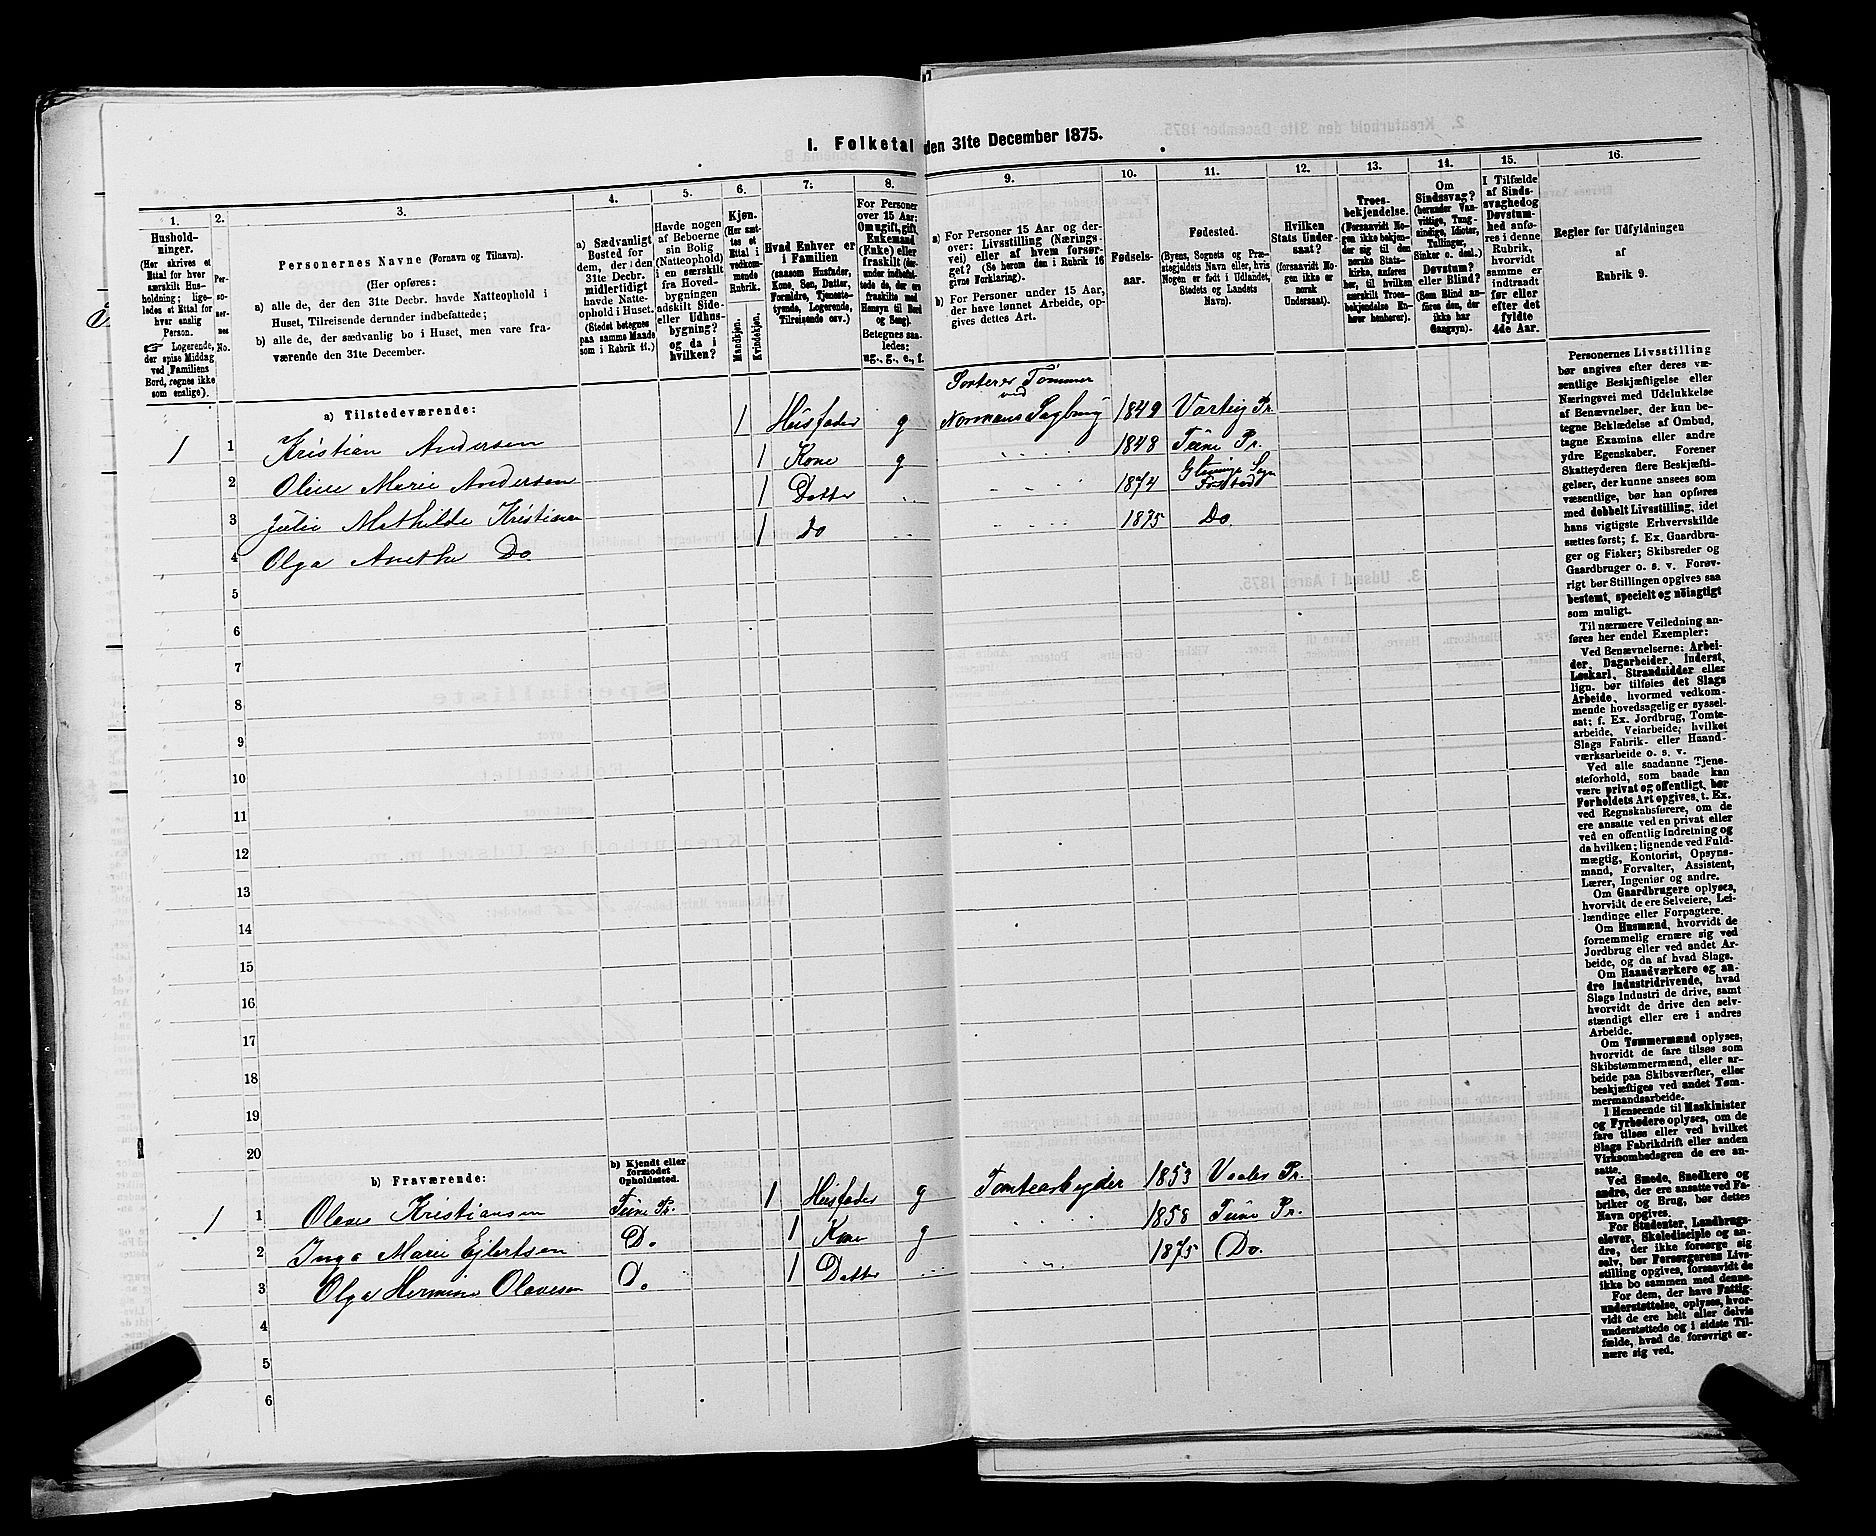 I. Folketal den 31te December 1875.
1. 2. 3. 4. 5. 6. 7. 8. 9. 10. 11. 12. 13. 14. 15. 16.
Husholdninger.
(Her skrives et Ettal for hver særskilt Husholdning; ligeledes et Ettal for hver enslig Person.
☞ Logerende, der spise Middag ved Familiens Bord, regnes ikke som enslige).
Personernes No.
Personernes Navne (Fornavn og Tilnavn).
(Her opføres:
a) alle de, der den 31te Decbr. havde Natteophold i Huset, Tilreisende derunder indbefattede;
b) alle de, der sædvanlig bo i Huset, men vare fraværende den 31te December.
a) Sædvanligt Bosted for dem, der i den 31te Decbr. midlertidigt havde Natteophold i Huset.
(Stedet betegnes paa samme Maade som i Rubrik 11.)
Havde nogen af Beboerne sin Bolig (Natteophold) i en særskilt fra Hovedbygningen adskilt Side- eller Udhusbygning? og da i hvilken?
Kjøn.
(Her sættes et Ettal i vedkommende Rubrik.
Mandskjøn.
Kvindekjøn.
Hvad Enhver er i Familien
(saasom Husfader, Kone, Søn, Datter, Forældre, Tjenestetyende, Logerende, Tilreisende osv.)
For Personer over 15 Aar: Om ugift, gift, Enkemand (Enke) eller fraskilt
Betegnes saaledes: ug., g., e., f.
a) For Personer 15 Aar og derover: Livsstilling (Næringsvei) eller af hvem forsørget? (Se herom den i Rubrik 16 givne Forklaring).
b) For Personer under 15 Aar, der have lønnet Arbeide, opgives dettes Art.
Fødselsaar.
Fødested.
(Byens, Sognets og Præstegjeldets Navn eller, hvis Nogen er født i Udlandet, Stedets og Landets Navn).
Hvilken Stats Undersaat?
(forsaavidt Nogen ikke er norsk Undersaat).
Troesbekjendelse.
(Forsaavidt Nogen ikke bekjender sig til den norske Statskirke, anføres her, til hvilken særskilt Troesbekjendelse Enhver henhører).
Om Sindssvag? (herunder Vanvittige, Tungsindige, Idioter, Tullinger, Sinker o. desl.) Døvstum? eller Blind? (Som Blind anføres den, der ikke har Gangsyn).
I Tilfælde af Sindssvaghed og Døvstumhed anføres i denne Rubrik, hvorvidt samme er indtraadt før eller efter det fyldte 4de Aar.
Regler for Udfyldningen af Rubrik 9.
a) Tilstedeværende:
Sorterer Tømmer ved
1 1 Kristian Andersen 1 Husfader g Normans Sagbrug 1849 Varteig Pr.
2 Oline Marie Andersen 1 Kone g 1848 Tune Pr.
3 Julie Mathilde Kristiansen 1 Datter 1874 Glemminge Sogn Frstad
4 Olga Anethe Do 1 Do 1875 Do.
5
6
7
8
9
10
11
12
13
14
15
16
17
18
19
20
b) Fraværende: b) Kjendt eller formodet Opholdssted.
1 1 Olaves Kristiansen Tune Pr. 1 Husfader g Tomtearbeyder 1853 Vaaler Pr.
2 Inga Marie Ejlertsen Do 1 Kone g 1858 Tune Pr.
3 Olga Hermine Olavesen Do 1 Datter 1875 Do.
4
5
6
Personernes Livsstilling
bør angives efter deres væ-
sentlige Beskjæftigelse eller
Næringsvei med Udelukkelse
af Benævnelser, der kun be-
tegne Beklædelse af Ombud,
tagne Examina eller andre
ydre Egenskaber. Forener
Skatteyderen flere Beskjæfti-
gelser, der kunne ansees som
væsentlige, bør han opføres
med dobbelt Livsstilling, idet
hans vigtigste Erhvervskilde
sættes først; f. Ex. Gaardbru-
ger og Fisker; Skibsreder og
Gaardbruger o. s. v. Forøv-
rigt bør Stillingen opgives saa
bestemt, specielt og nöiagtigt
som muligt.
Til nærmere Veiledning an-
føres her endel Exempler:
Ved Benævnelserne: Arbei-
der, Dagarbeider, Inderst,
Løskarl, Strandsidder eller
lign. bør tilføies det Slags
Arbeide, hvormed vedkom-
mende hovedsagelig er syssel-
sat; f. Ex. Jordbrug, Tomte-
arbeide, Veiarbeide; hvilket
Slags Fabrik- eller Haand-
værksarbeide o. s. v.
Ved alle saadanne Tjene-
steforhold, som baade kan
være privat og offentligt, bør
Forholdets Art opgives, t. Ex.
ved Regnskabsførere, om de
ere ansatte ved en privat eller
ved en offentlig Indretning og
da hvilken; lignende ved Fuld-
mægtig, Kontorist, Opsyns-
mand, Forvalter, Assistent,
Lærer, Ingeniør og andre.
Om Gaardbrugere oplyses,
hvorvidt de ere Selveiere, Lei-
lændinge eller Forpagtere.
Om Husmænd, hvorvidt de
fornemmelig ernære sig ved
Jordbrug eller ved andet Ar-
beide, og da af hvad Slags.
Om Haandværkere og an-
dre Industridrivende, hvad
Slags Industri de drive, samt
hvorvidt de drive den selv-
stændigt eller ere i andres
Arbeide.
Om Tømmermænd oplyses,
hvorvidt de fare tilsøs som
Skibstømmermænd, eller ar-
beide paa Skibsværfter, eller
beskjæftiges ved andet Tøm-
mermandsarbeide.
I Henseende til Maskinister
og Fyrbødere oplyses, om de
fare tilsøs eller ved hvilket
Slags Fabrikdrift eller anden
Virksomhedsgren de ere an-
satte.
Ved Smede, Snedkere og
andre, der ere ansatte ved Fa-
briker og Brug, bør dettes
Navn opgives.
For Studenter, Landbrugs-
elever, Skoledisciple og an-
dre, der ikke forsørge sig
selv, bør Forsørgerens Livs-
stilling opgives, forsaavidt de
ikke bo sammen med denne.
For dem, der have Fattig-
understøttelse, oplyses, hvor-
vidt de ere helt eller delvis
understøttede og i sidste Til-
fælde, hvad de forøvrigt er-
nære sig ved.